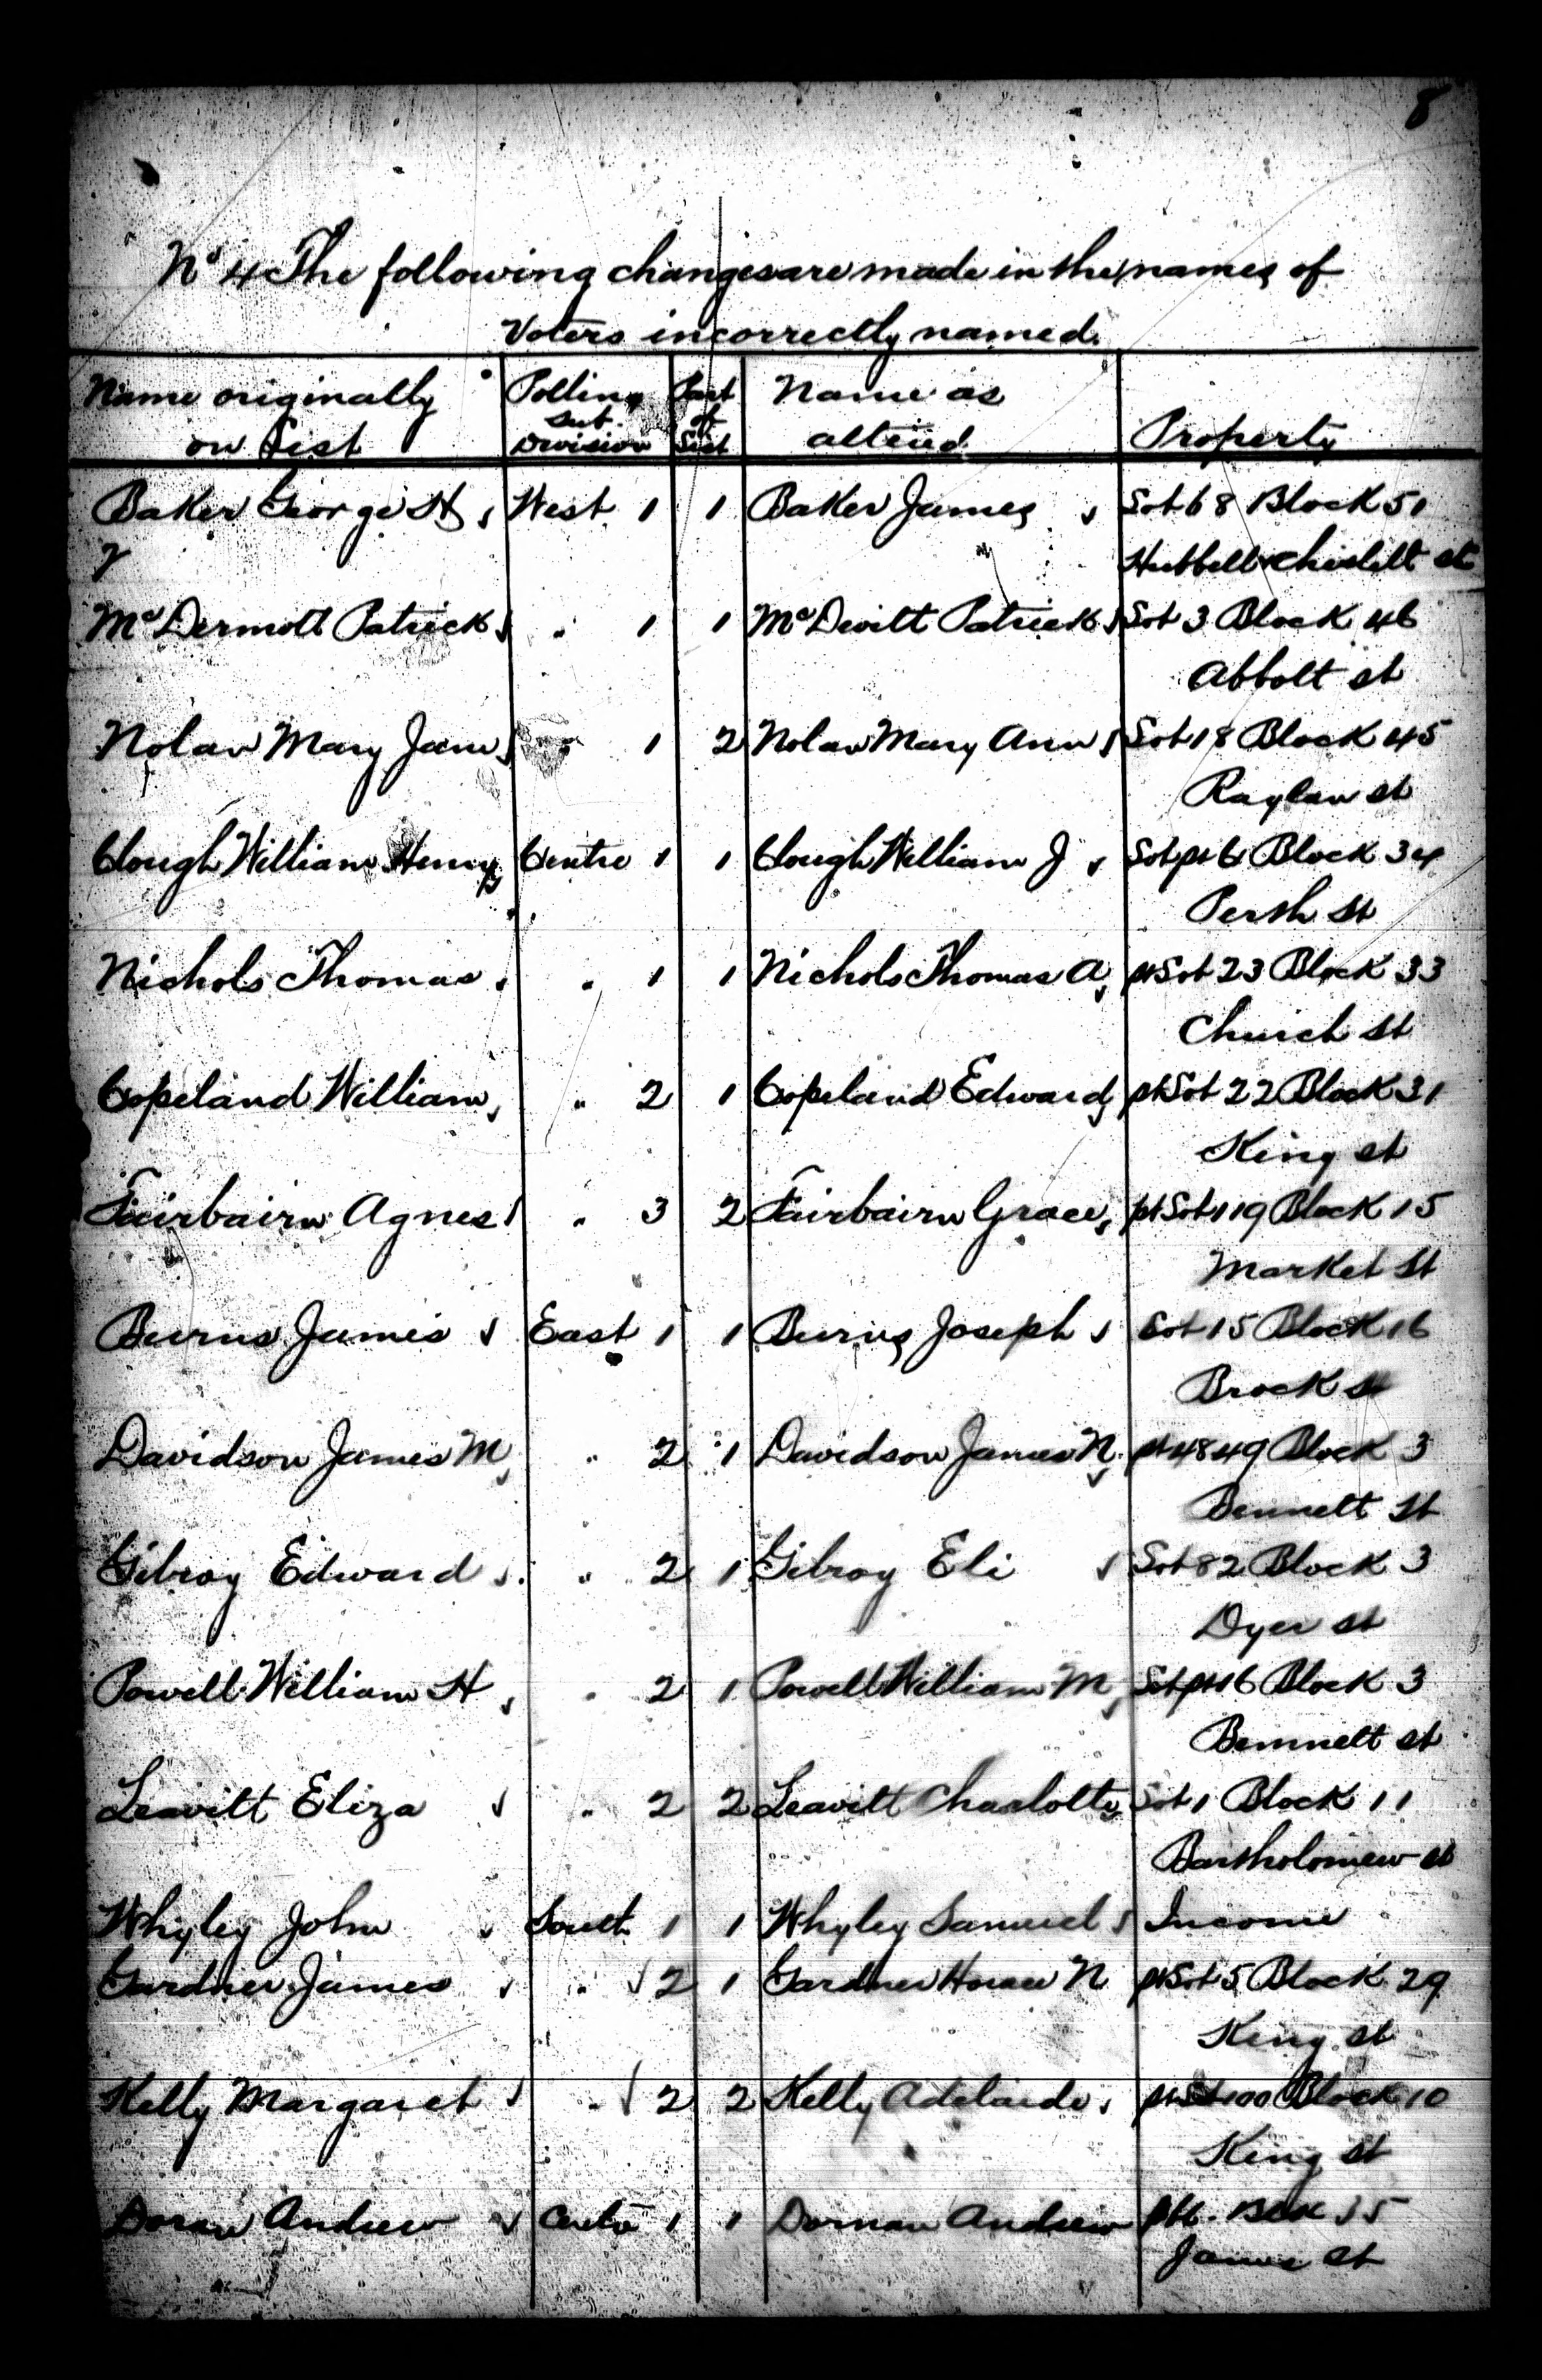 8
No 4 The following changes are made in the names of
Voters incorrectly named.
Name originally on List Polling Sub. Division Part of List Name as altered Property
Baker George H West 1 1 Baker James Lot 68 Block 51
Hubbell & Chislett st
McDermott Patrick " 1 1 McDevitt Patrick Lot 3 Block 46
Abbott st
Nolan Mary Jane " 1 2 Nolan Mary Ann Lot 18 Block 45
Raglan st
Clough William Henry Centre 1 1 Clough William J Lot pt 6 Block 34
Perth St
Nichols Thomas " 1 1 Nichols Thomas A pt Lot 23 Block 33
Church St
Copeland William " 2 1 Copeland Edward pt Lot 22 Block 31
King st
Fairbairn Agnes " 3 2 Fairbairn Grace pt Lot 119 Block 15
Market St
Burns James East 1 1 Burns Joseph Lot 15 Block 16
Brock St
Davidson James M " 2 1 Davidson James N pt 48 49 Block 3
Bennett St
Gilroy Edward " 2 1 Gilroy Eli Lot 82 Block 3
Dyer st
Powell William H " 2 1 Powell William M Lot pt 16 Block 3
Bennett st
Leavitt Eliza " 2 2 Leavitt Charlotte Lot 1 Block 11
Bartholomew st
Whyley John South 1 1 Whyley Samuel Income
Gardner James " 2 1 Gardner Horace N pt Lot 5 Block 29
King st
Kelly Margaret " 2 2 Kelly Adelaide pt Lot 100 Block 10
King st
Doran Andrew Centre 1 1 Dornan Andrew Block 35
James st